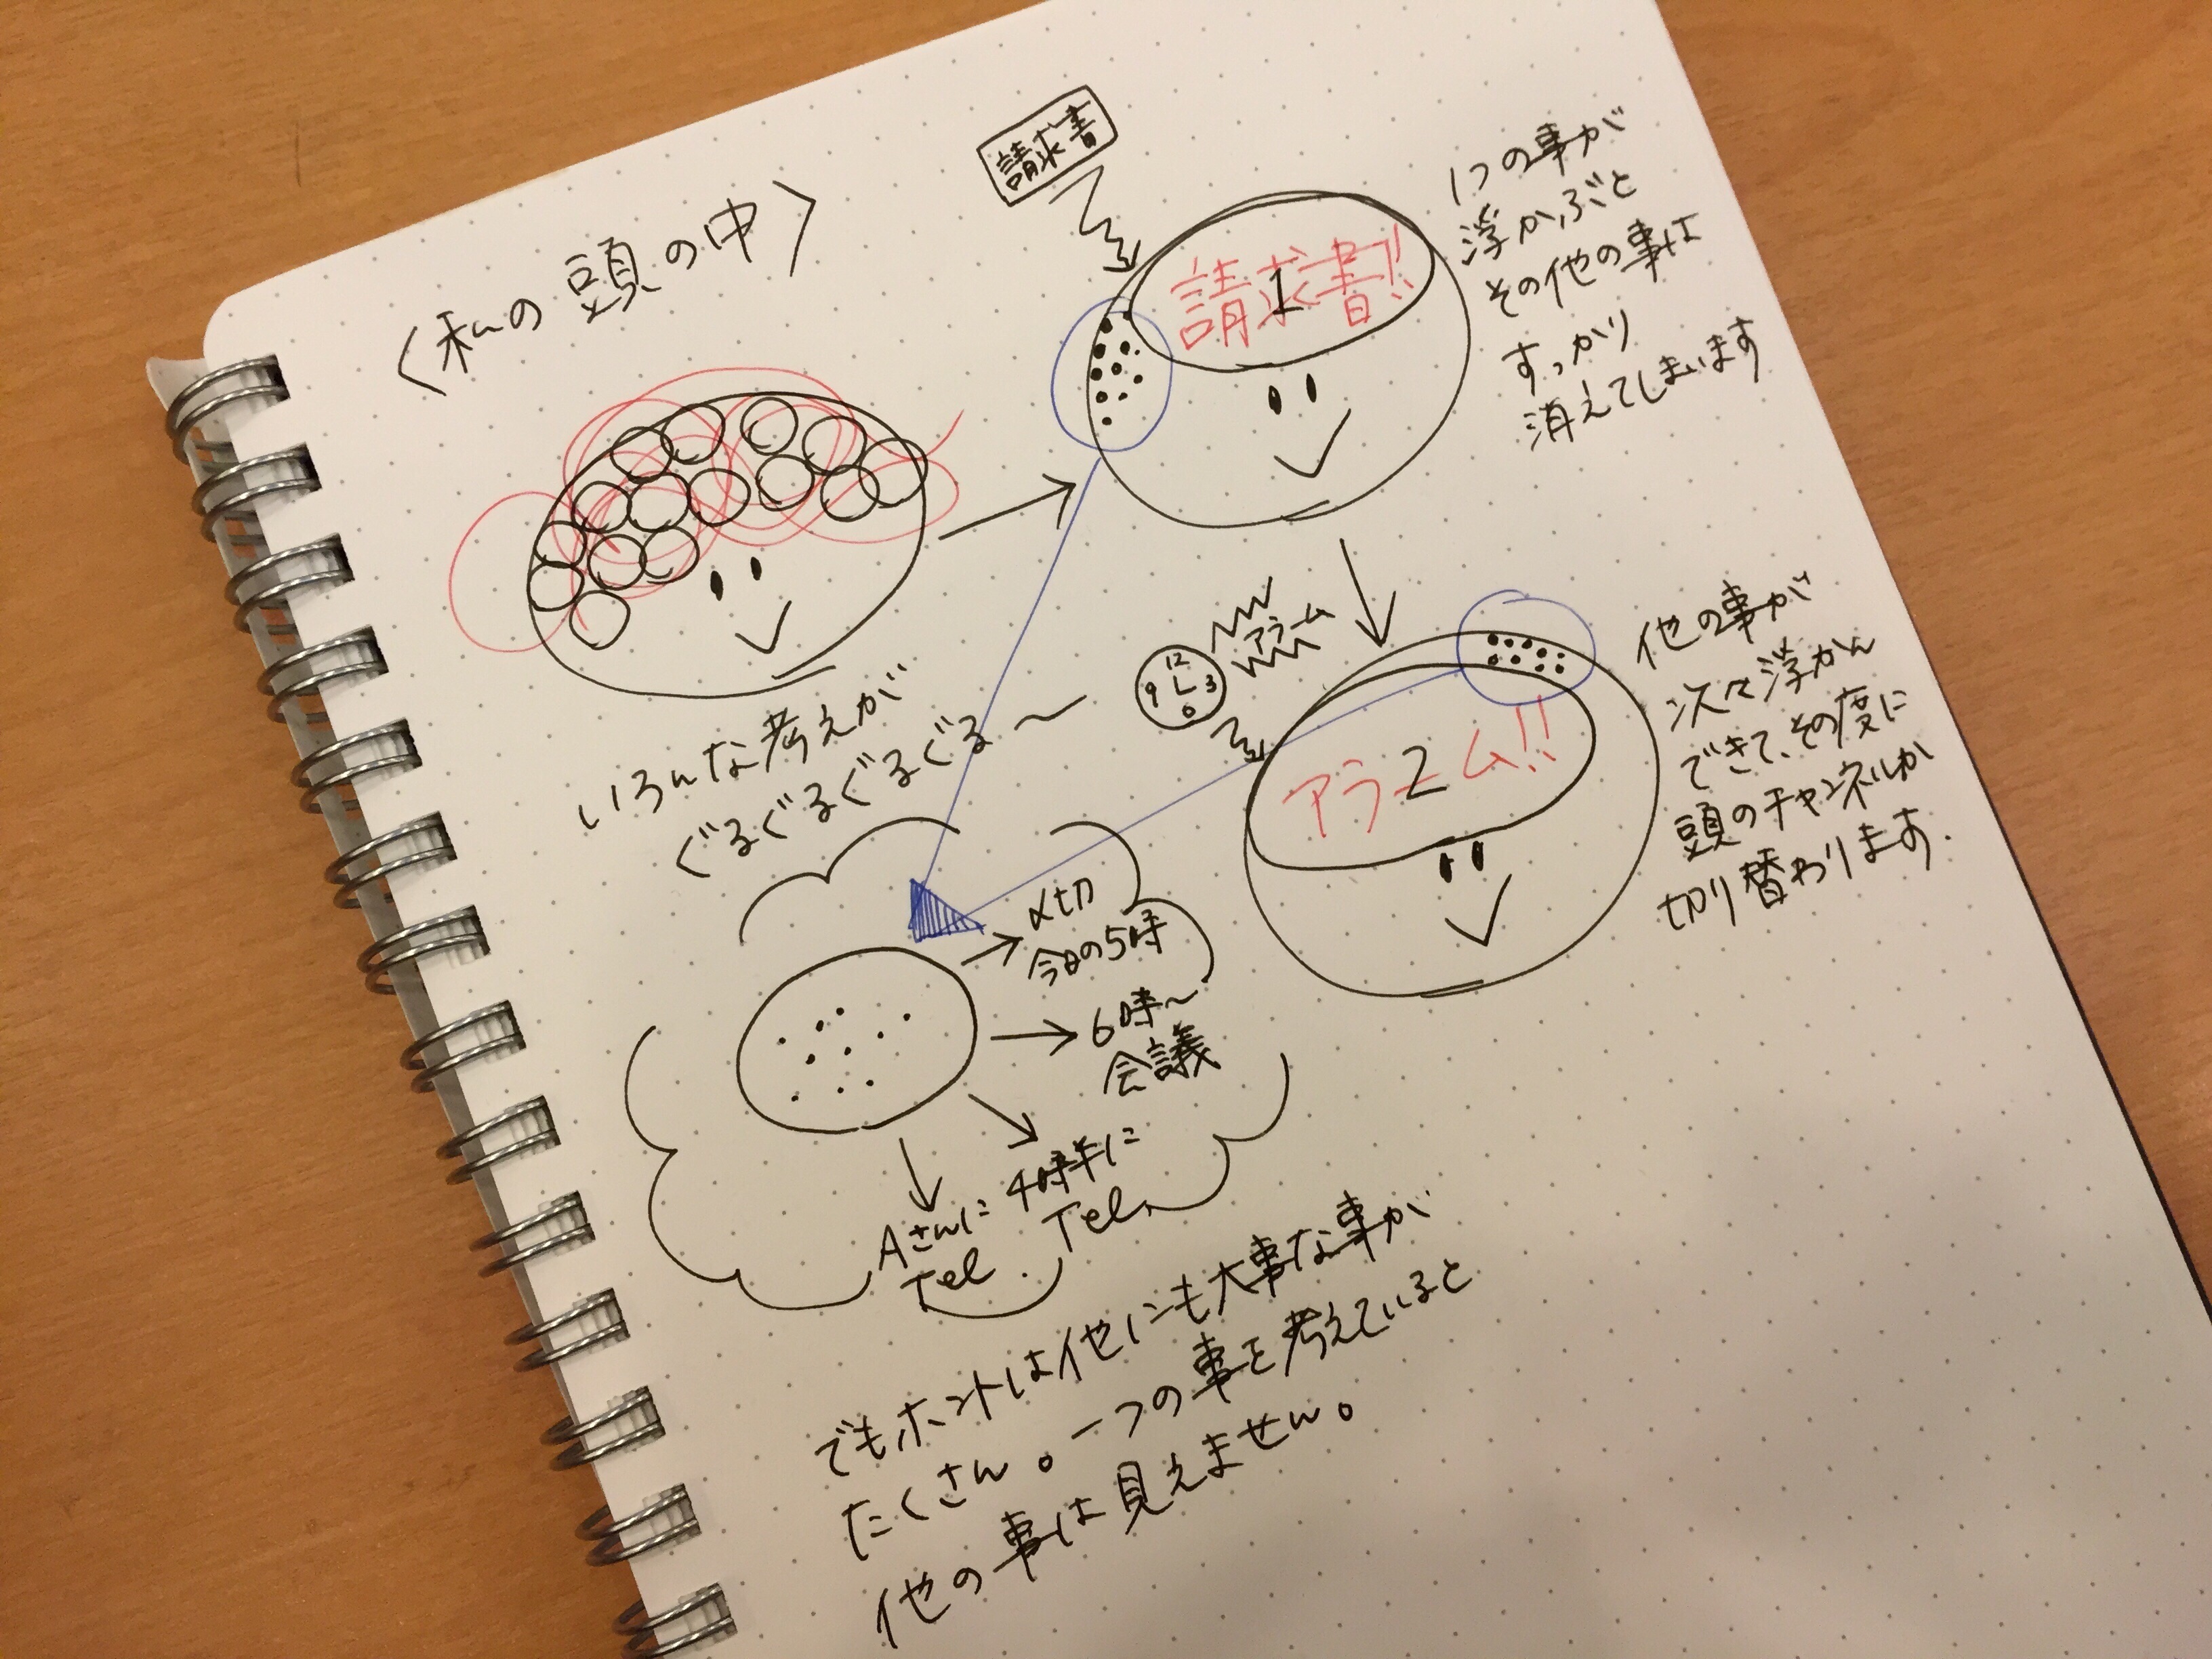 〈私の頭の中〉
請求書
請求書!!
1
1つの事が
浮かぶと
その他の事は
すっかり
消えてしまいます
いろんな考えが
ぐるぐるぐるぐる〜
12
9 3
6
アラーム
アラーム!!
2
他の事が
次々浮かん
できて、その度に
頭のチャンネルが
切り替わります.
〆切
今日の5時
6時〜
会議
4時半に
Tel
Aさんに
Tel.
でもホントは他にも大事な事が
たくさん。一つの事を考えていると
他の事は見えません。